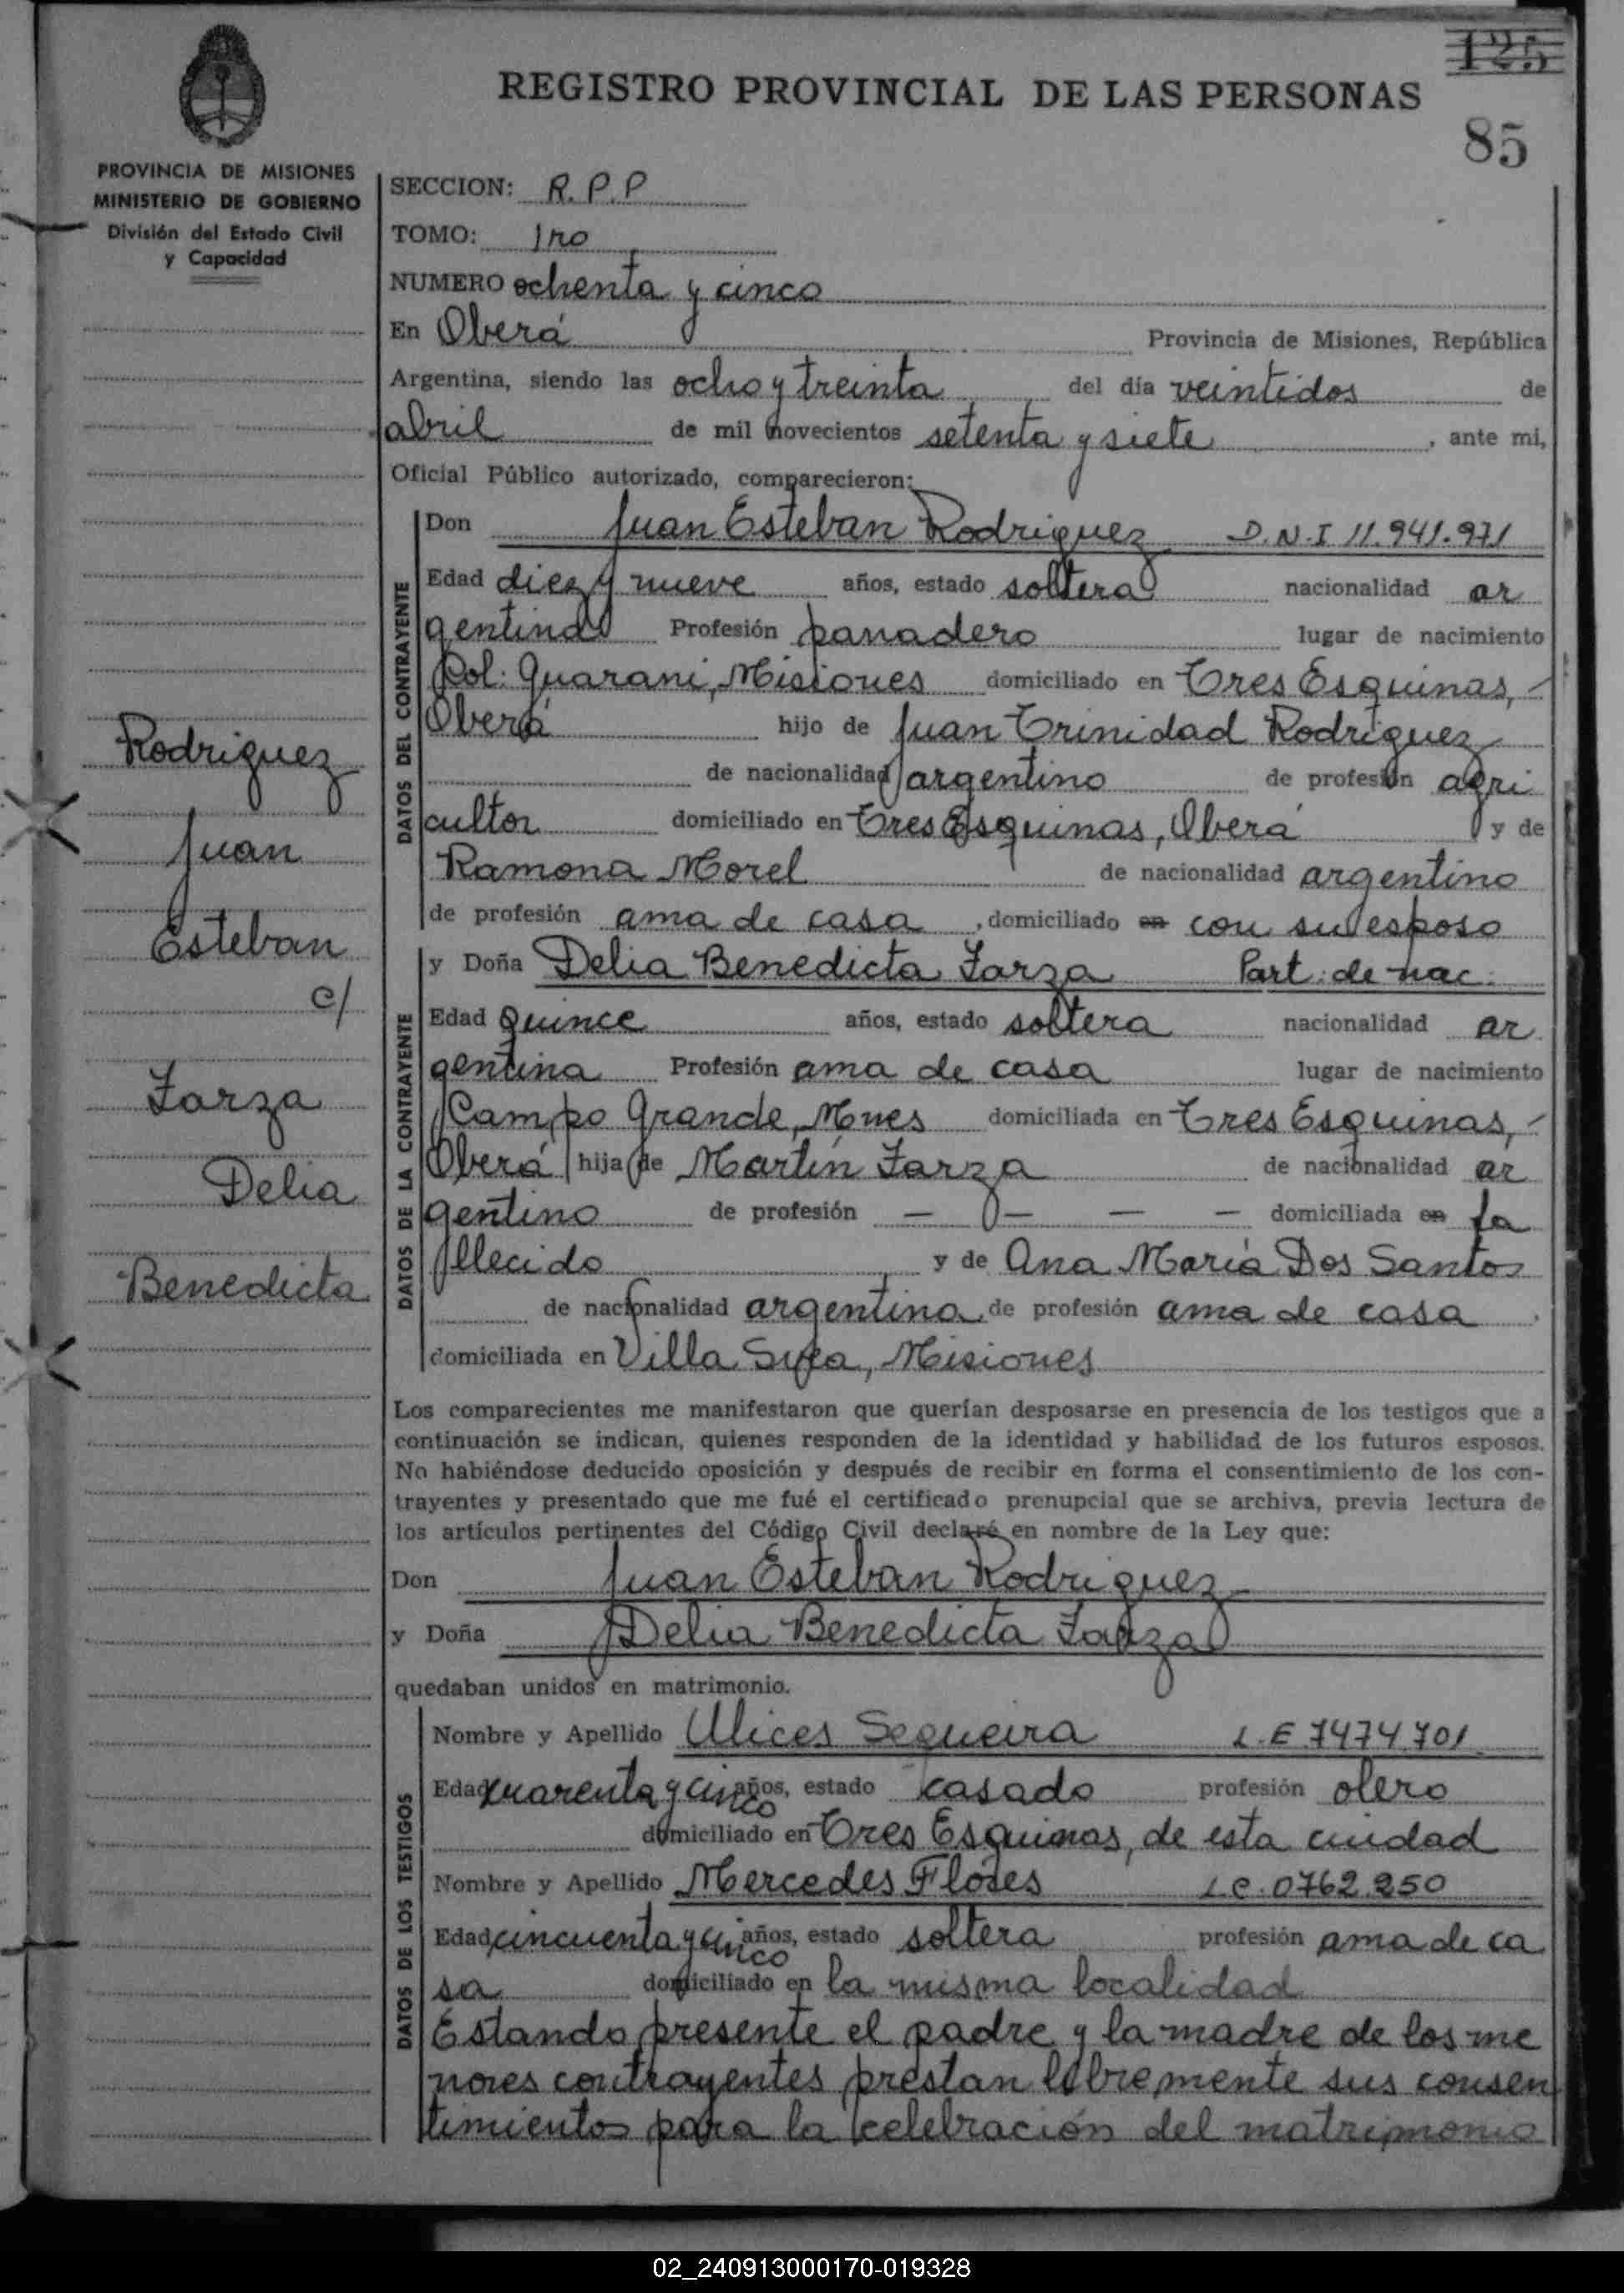 125
REGISTRO PROVINCIAL DE LAS PERSONAS
85
PROVINCIA DE MISIONES
MINISTERIO DE GOBIERNO
División del Estado Civil
y Capacidad
Rodriguez
Juan
Esteban
c/
Zarza
Delia
Benedicta
SECCION: R.P.P
TOMO: 1ro
NUMERO ochenta y cinco
En Oberá Provincia de Misiones, República
Argentina, siendo las ocho y treinta del día veintidos de
abril de mil novecientos setenta y siete, ante mi,
Oficial Público autorizado, comparecieron:
DATOS DEL CONTRAYENTE
Don Juan Esteban Rodriguez D.N.I 11.941.971
Edad diez y nueve años, estado soltera nacionalidad ar
gentina Profesión panadero lugar de nacimiento
Col: Guarani, Misiones domiciliado en Tres Esquinas,
Oberá hijo de Juan Trinidad Rodriguez
de nacionalidad argentino de profesión agri
cultor domiciliado en Tres Esquinas, Oberá y de
Ramona Morel de nacionalidad argentino
de profesión ama de casa, domiciliado en con su esposo
DATOS DE LA CONTRAYENTE
y Doña Delia Benedicta Zarza Part: de nac.
Edad Quince años, estado soltera nacionalidad ar
gentina Profesión ama de casa lugar de nacimiento
Campo Grande, Mnes domiciliada en Tres Esquinas,
Oberá hija de Martín Zarza de nacionalidad ar
gentino de profesión — — — — domiciliada en fa
llecido y de Ana María Dos Santos
de nacionalidad argentina de profesión ama de casa.
domiciliada en Villa Misiones
Los comparecientes me manifestaron que querían desposarse en presencia de los testigos que a
continuación se indican, quienes responden de la identidad y habilidad de los futuros esposos.
No habiéndose deducido oposición y después de recibir en forma el consentimiento de los con-
trayentes y presentado que me fué el certificado prenupcial que se archiva, previa lectura de
los artículos pertinentes del Código Civil declaré en nombre de la Ley que:
Don Juan Esteban Rodriguez
y Doña Delia Benedicta Zarza
quedaban unidos en matrimonio.
DATOS DE LOS TESTIGOS
Nombre y Apellido Ulices Sequeira L.E 7474.701
Edad cuarenta y cinco años, estado casado profesión olero
domiciliado en Tres Esquinas, de esta ciudad
Nombre y Apellido Mercedes Flores L.C. 0762.250
Edad cincuenta y cinco años, estado soltera profesión ama de ca
sa domiciliado en la misma localidad
Estando presente el padre y la madre de los me
nores contrayentes prestan libremente sus consen
timientos para la celebración del matrimonio
02_240913000170-019328